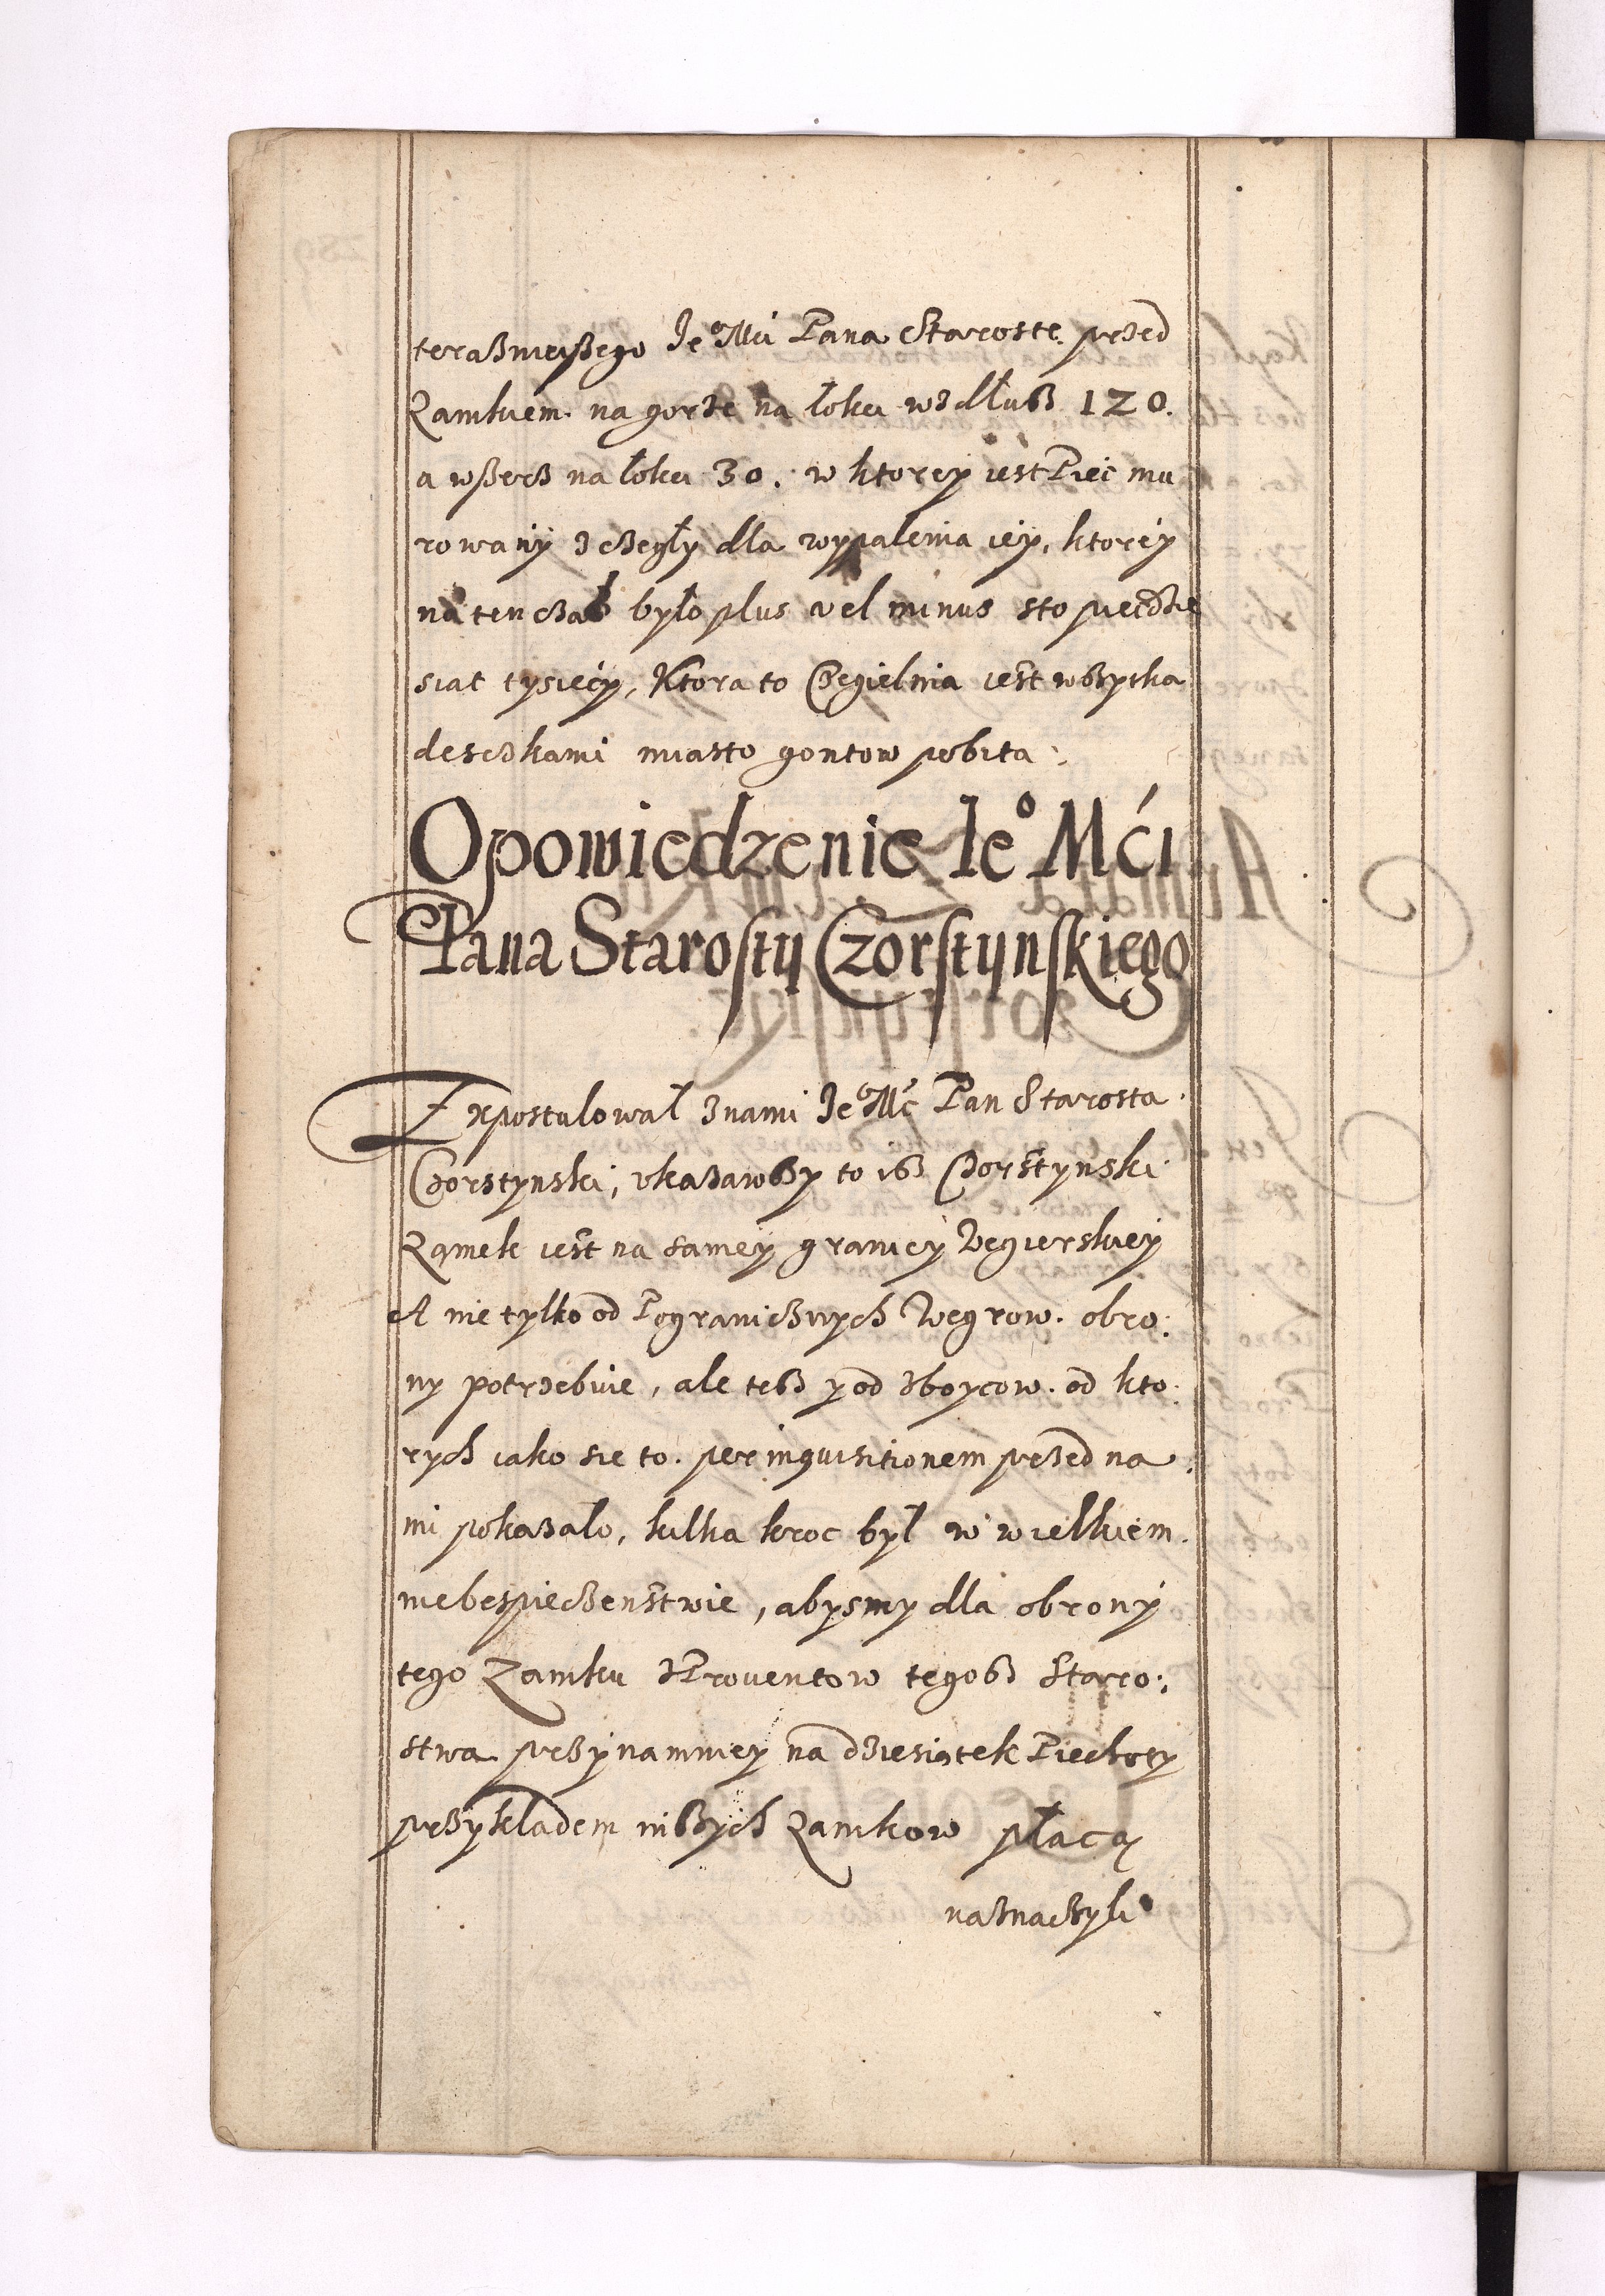 teraznieyszego Je° Mci Pana Staroste przed
Zamkiem na gorze na łokci wzdłusz 120.
a wszerz na łokci 30. w ktorey iest Piec mu
rowany z czegły dla wypalenia iey, ktorey
na ten czas było plus vel minus sto piecdzie
siat tysiecy, Ktora to Czegielnia iest wszytka
desczkami miasto gontow pobita.
Opowiedzenie Ie° Mći
Pana Starosty Czorstynskiego
Expostulował z nami Je° Mć Pan Starosta
Czorstynski, vkazawszy to isz Czorstynski
Zamek iest na samey granicy Wegierskiey
A nie tylko od Pogranicznych Wegrow. obro:
ny potrzebuie, ale tesz y od zboycow. od kto:
rych iako sie to. per inquisitionem przed na:
mi pokazało, kilka kroc był w wielkiem.
niebespieczenstwie, abysmy dla obrony
tego Zamku z Prouentow tegosz Staro:
stwa przynamniey na dziesiątek Piechoty
przykladem inszych Zamkow płacą
naznaczyli